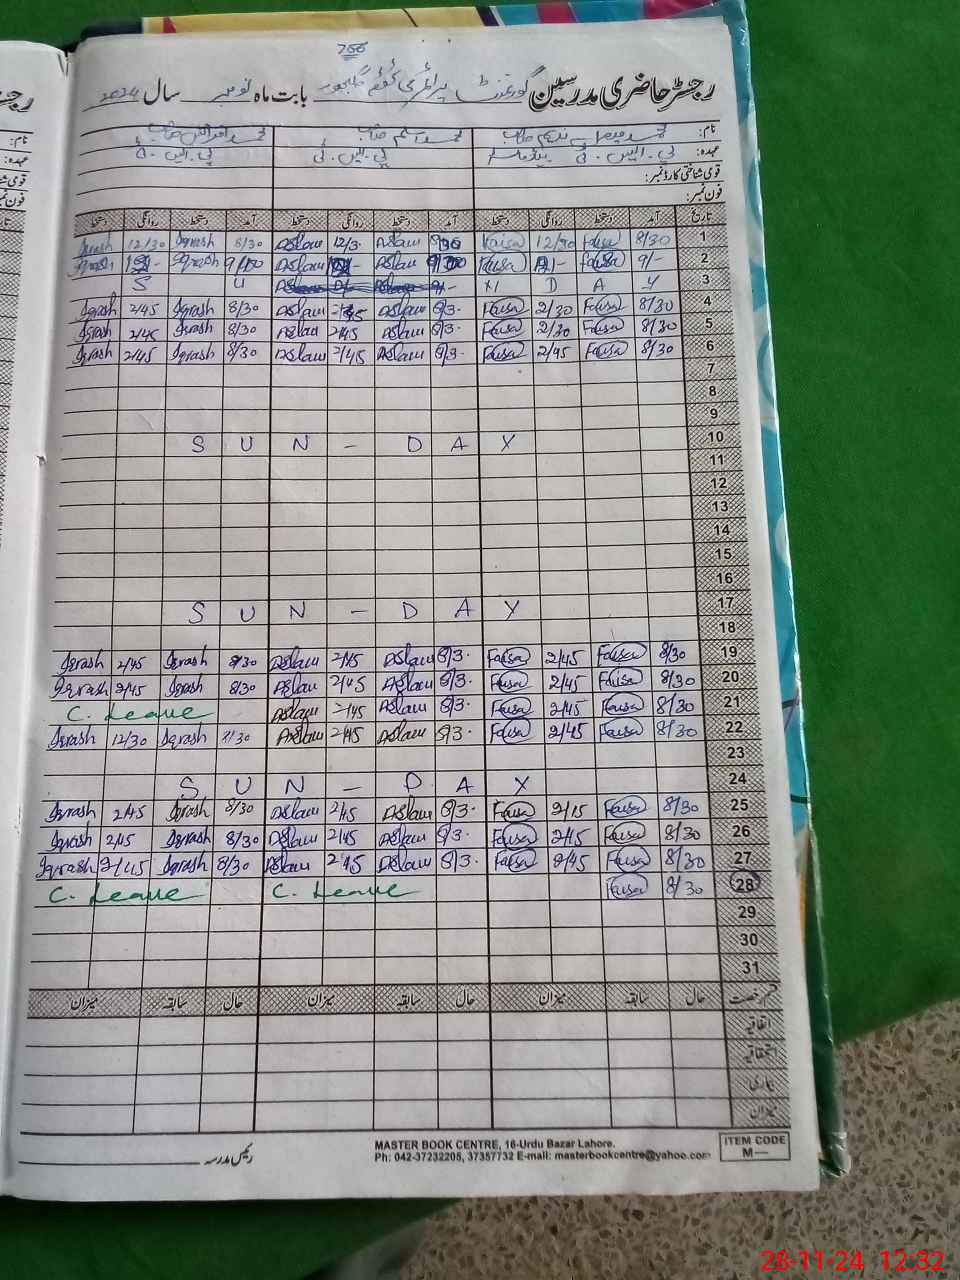 رجسٹر حاضری مدرسین گورنمنٹ پرائمری بابت ماہ نومبر سال 2024
نام: محمد فیصل ندیم صاحب محمد اسلم صاحب محمد صاحب
عہدہ: پی.ایس.ٹی پی.ایس.ٹی پی.ایس.ٹی
قومی شناختی کارڈ نمبر:
فون نمبر:
تاریخ آمد دستخط روانگی دستخط آمد دستخط روانگی دستخط آمد دستخط روانگی دستخط
1 8/30 Faisa 12/30 Faisa Aslam 12/3 Aslam Iqrash 8/30 Iqrash 12/30
2 9/- Faisa Faisa Aslam Aslam Iqrash Iqrash
3 S U N D A Y
4 8/30 Faisa 2/30 Faisa 8/3. Aslam Aslam 8/30 Iqrash 2/45 Iqrash
5 8/30 Faisa 2/30 Faisa 8/3. Aslam 2/45 Aslam 8/30 Iqrash 2/45 Iqrash
6 8/30 Faisa 2/45 Faisa 8/3. Aslam 2/45 Aslam 8/30 Iqrash 2/45 Iqrash
7
8
9
10 S U N - D A Y
11
12
13
14
15
16
17 S U N - D A Y
18
19 8/30 Faisa 2/45 Faisa 8/3. Aslam 2/45 Aslam 8/30 Iqrash 2/45 Iqrash
20 8/30 Faisa 2/45 Faisa 8/3. Aslam 2/45 Aslam 8/30 Iqrash 2/45 Iqrash
21 8/30 Faisa 2/45 Faisa 8/3. Aslam 2/45 Aslam C. Leave
22 8/30 Faisa 2/45 Faisa 8/3. Aslam 2/45 Aslam 8/30 Iqrash 12/30 Iqrash
23
24 S U N - D A Y
25 8/30 Faisa 2/15 Faisa 8/3. Aslam 2/45 Aslam 8/30 Iqrash 2/45 Iqrash
26 8/30 Faisa 2/45 Faisa 8/3. Aslam 2/45 Aslam 8/30 Iqrash 2/45 Iqrash
27 8/30 Faisa 2/45 Faisa 8/3. Aslam 2/45 Aslam 8/30 Iqrash 2/45 Iqrash
28 8/30 Faisa C. Leave C. Leave
29
30
31
قسم رخصت حال سابقہ میزان حال سابقہ میزان حال سابقہ میزان
اتفاقیہ
استحقاقیہ
بیماری
میزان
رئیس مدرسہ
MASTER BOOK CENTRE, 16-Urdu Bazar Lahore.
Ph: 042-37232205, 37357732 E-mail: masterbookcentre@yahoo.com
ITEM CODE
M—
28-11-24 12:32